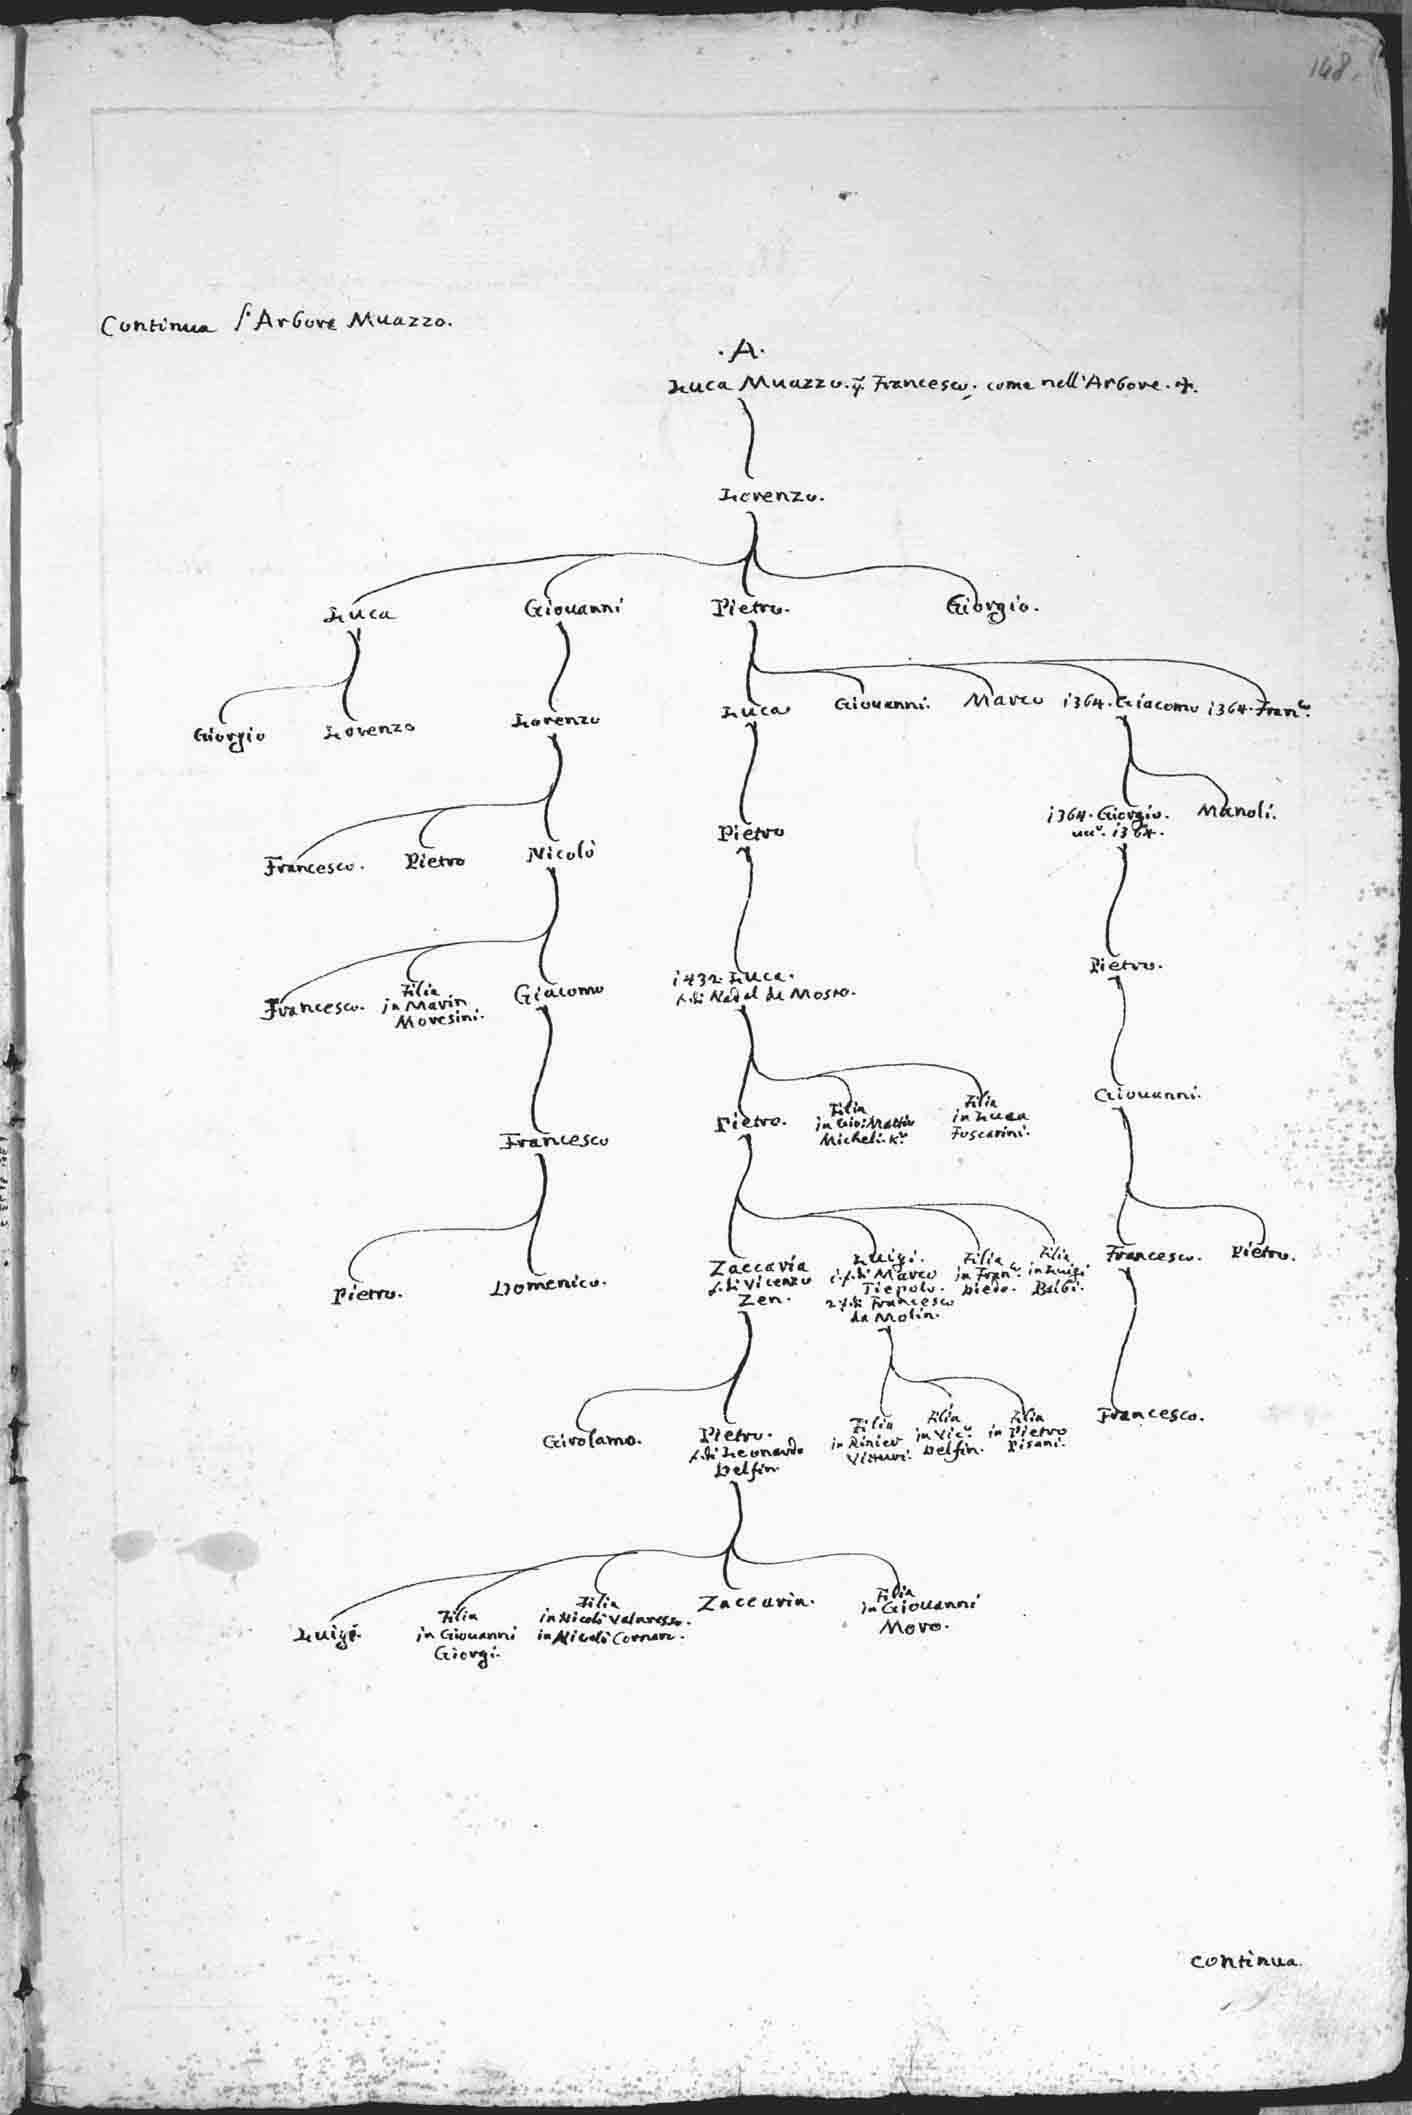 148.
Continua l'Arbore Muazzo.
.A.
Luca Muazzo. q. Francesco, come nell'Arbore. +.
Lorenzo.
Luca
Giouanni
Pietro.
Giorgio.
Giorgio
Lorenzo
Lorenzo
Luca
Giouanni.
Marco
1364. Giacomo
1364. Fran.co
Francesco.
Pietro
Nicolò
Pietro
1364. Giorgio.
1364.
Manoli.
Francesco.
Filia
in Marin
Moresini.
Giacomo
1432. Luca.
f. di Nadal da Mosto.
Pietro.
Francesco
Pietro.
Filia
in Gio: Mattio
Micheli. K.r
Filia
in Luca
Foscarini.
Giouanni.
Pietro.
Domenico.
Zaccaria
f. di Vicenzo
Zen.
Luigi.
1. f. di Marco
Tiepolo.
2. f. di Francesco
da Molin.
Filia
in Fran.co
Diedo.
Filia
in Luigi
Balbi.
Francesco.
Pietro.
Girolamo.
Pietro.
f. di Leonardo
Delfin.
Filia
in Rinier
Vitturi.
Filia
in Vic.o
Delfin.
Filia
in Pietro
Pisani.
Francesco.
Luigi.
Filia
in Giouanni
Giorgi.
Filia
in Nicolò Valaresso.
in Nicolò Cornaro.
Zaccaria.
Filia
in Giouanni
Moro.
continua.